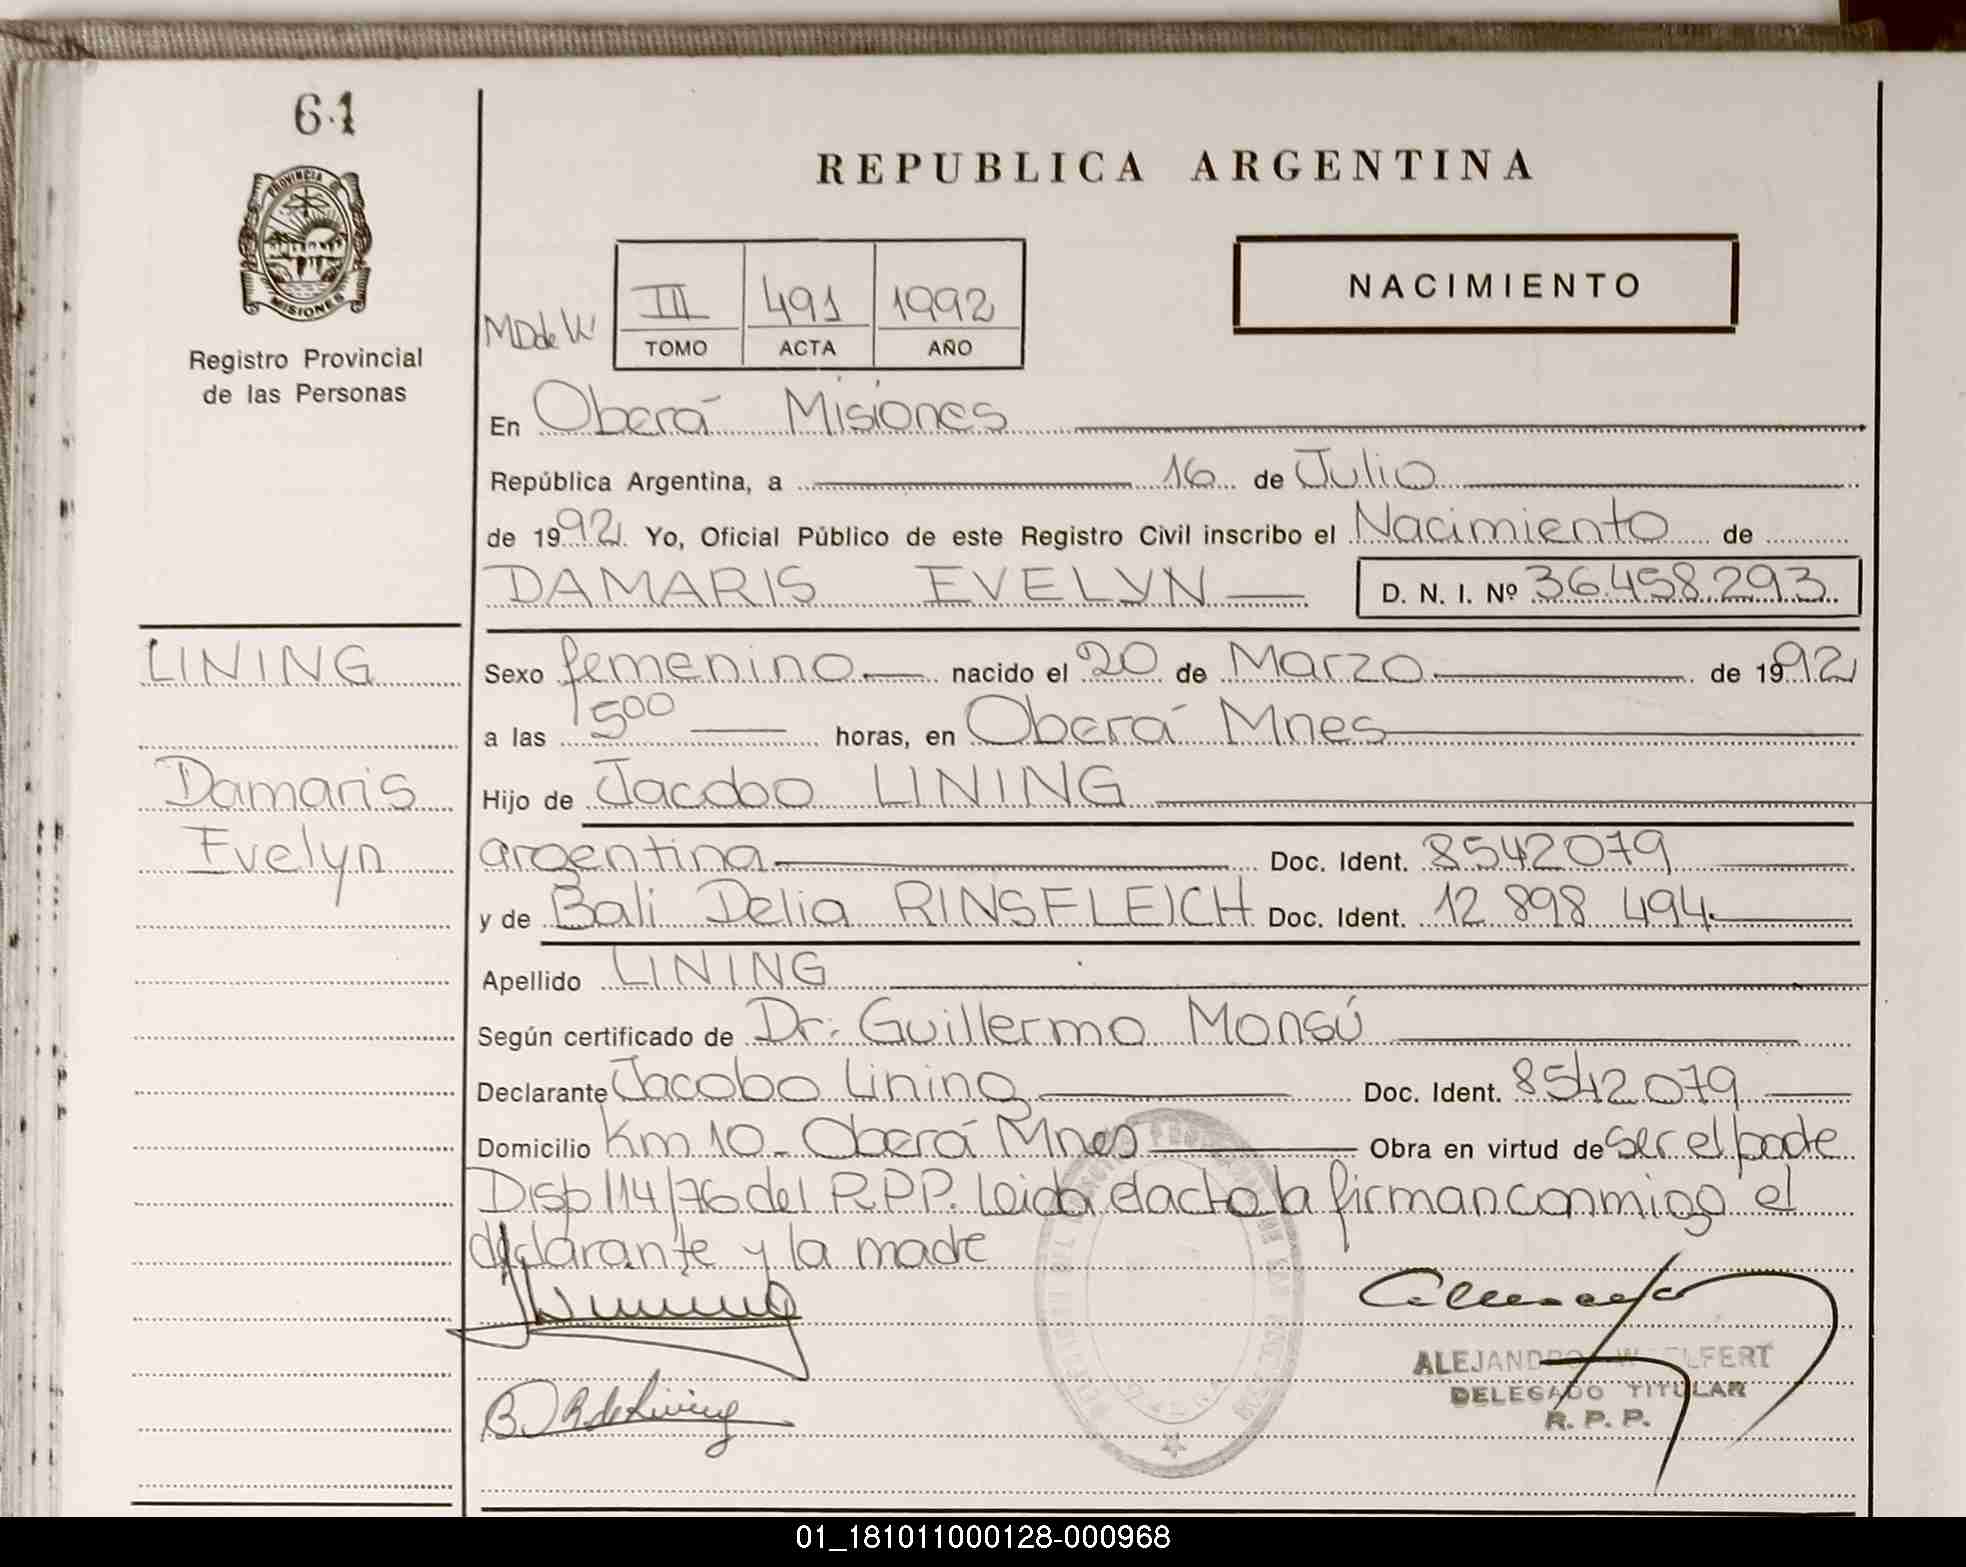 61
PROVINCIA
MISIONES
Registro Provincial
de las Personas
REPUBLICA ARGENTINA
NACIMIENTO
III 491 1992
TOMO ACTA AÑO
En Oberá Misiones
República Argentina, a 16 de Julio
de 1992 Yo, Oficial Público de este Registro Civil inscribo el Nacimiento de
DAMARIS EVELYN D. N. I. Nº 36.458.293
LINING
Sexo femenino nacido el 20 de Marzo de 1992
a las 500 horas, en Oberá Mnes
Damaris
Hijo de Jacobo LINING
Evelyn
argentina Doc. Ident. 8542079
y de Bali Delia RINSFLEICH Doc. Ident. 12 898 494
Apellido LINING
Según certificado de Dr: Guillermo Monsú
Declarante Jacobo Lining Doc. Ident. 8542079
Domicilio Km 10 - Oberá Mnes Obra en virtud de ser el padre
Disp 114/76 del R.P.P. Leida el acta la firman conmigo el
declarante y la madre
B D R de Lining
ALEJANDRO W LFERT
DELEGADO TITULAR
R. P. P.
01_181011000128-000968